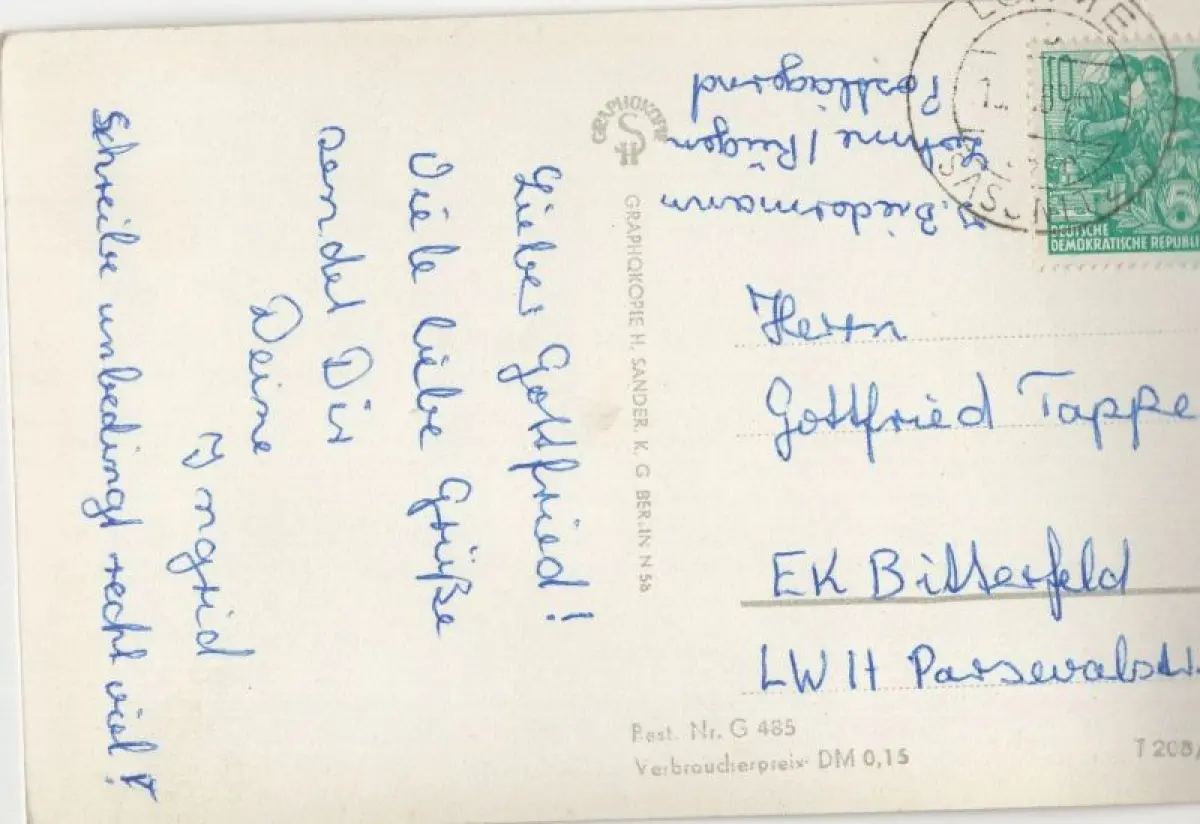 Lieber Gottfried!
Viele liebe Grüße
sendet Dir
Deine
Ingrid
Schreibe unbedingt recht viel!
GRAPHOKOPIE
GRAPHOKOPIE H. SANDER. K. G BERLIN N 58
Biedermann
Lohme / Rügen
Postlagernd
LOHME
SASSNITZ
10
DEUTSCHE
DEMOKRATISCHE REPUBLIK
Herrn
Gottfried Tappe
EK Bitterfeld
LWH Parsevalstr.
Best. Nr. G 485
Verbraucherpreis DM 0,15
T 208/